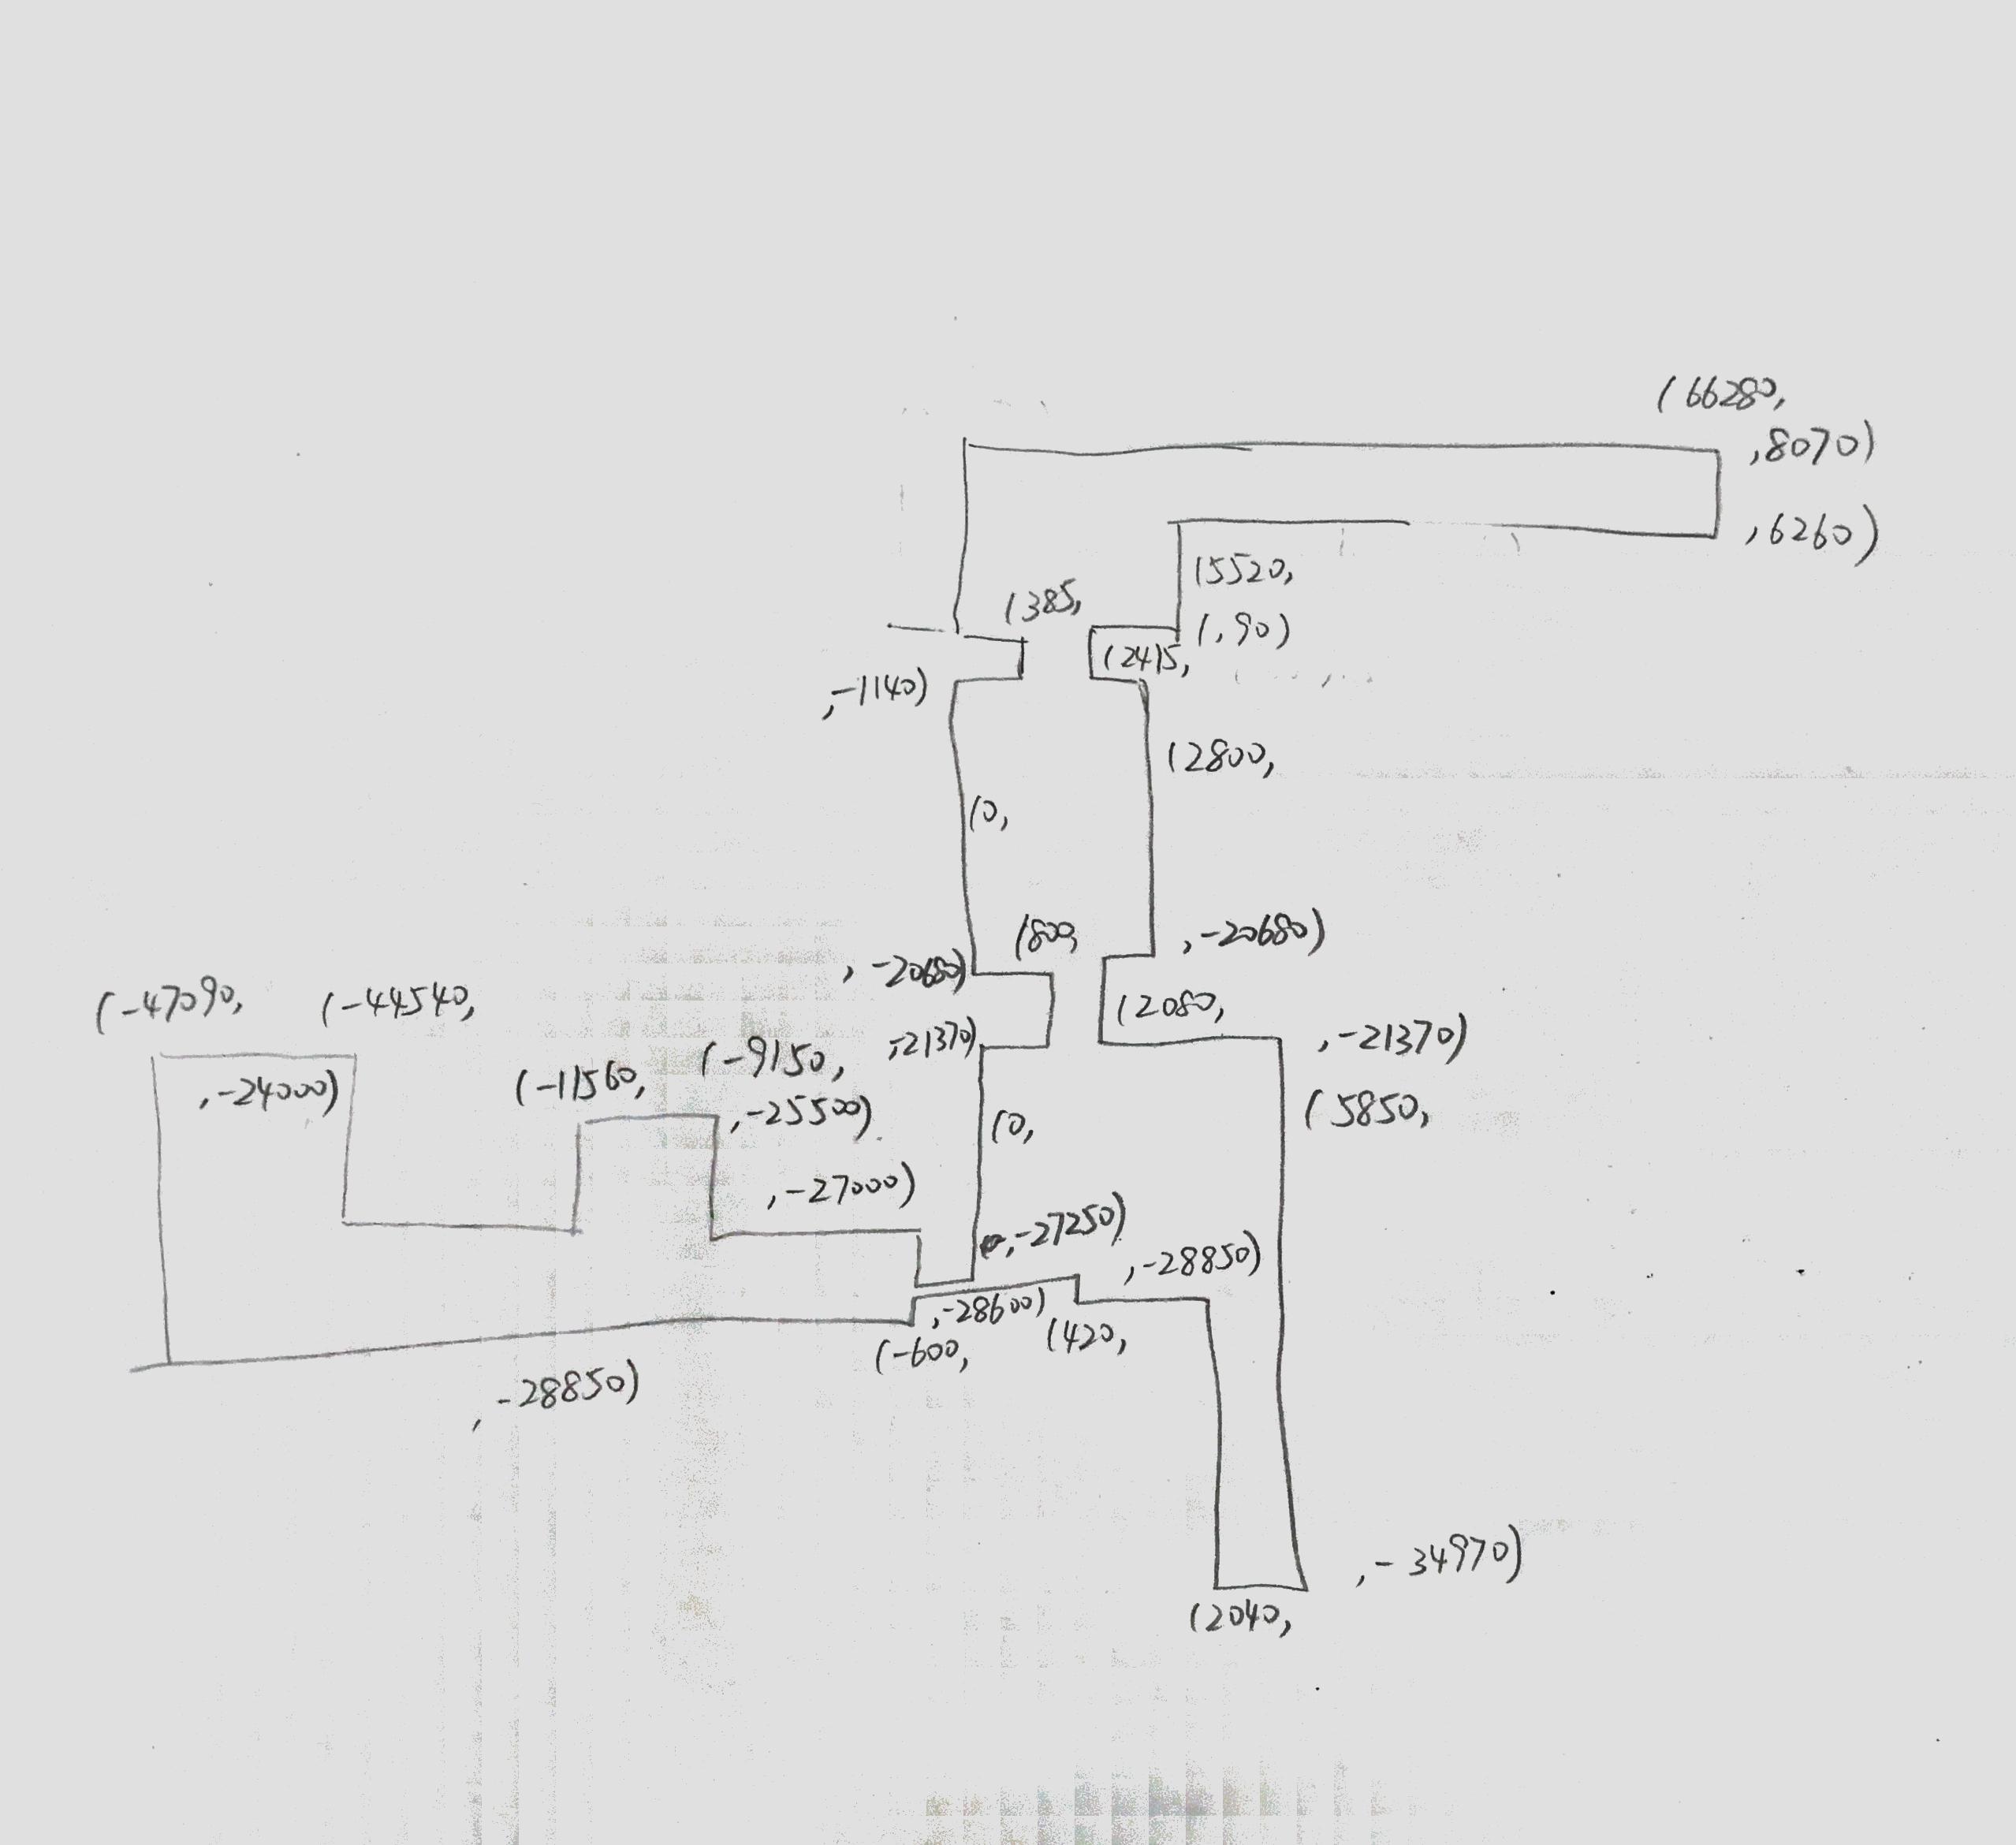 (66280,
,8070)
,6260)
(5520,
(385,
(,90)
(2415,
,-1140)
(2800,
(0,
(800,
,-20680)
,-20680)
(-47090,
(-44540,
(2080,
,-21370)
,-21370)
(-9150,
(-11560,
,-24000)
,-25500)
(5850,
(0,
,-27000)
,-27250)
,-28850)
,-28600)
(420,
(-600,
,-28850)
,-34970)
(2040,